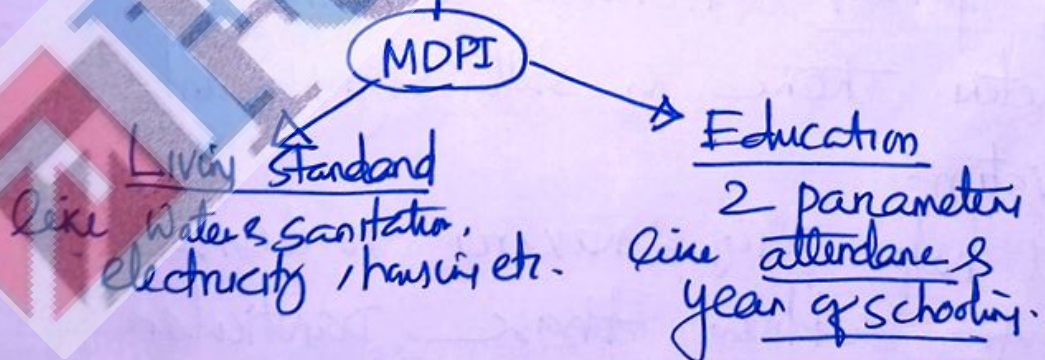 MDPI
Living Standard
like Water & Sanitation,
electricity, housing etc.
Education
2 parameters
like attendane &
year of schooling.